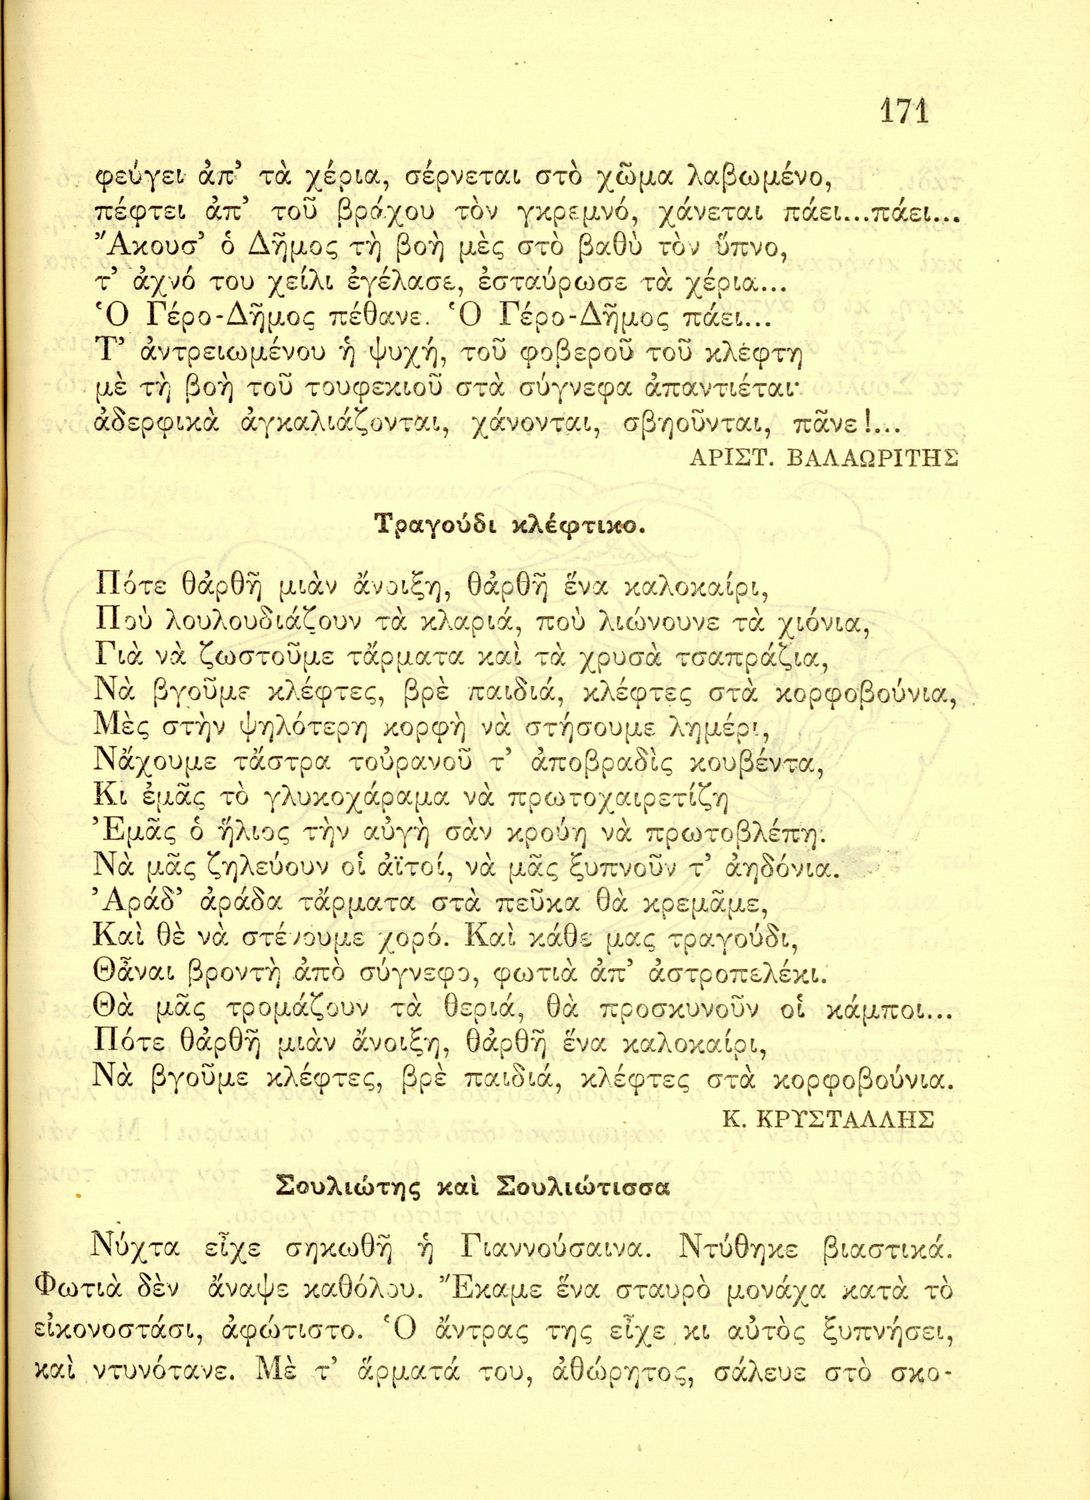 171
φεύγει ἀπ’ τὰ χέρια, σέρνεται στὸ χῶμα λαβωμένο,
πέφτει ἀπ’ τοῦ βράχου τὸν γκρεμνό, χάνεται πάει...πάει...
Ἄκουσ’ ὁ Δῆμος τὴ βοὴ μὲς στὸ βαθὺ τὸν ὕπνο,
τ’ ἀχνό του χείλι ἐγέλασε, ἐσταύρωσε τὰ χέρια...
Ὁ Γέρο-Δῆμος πέθανε. Ὁ Γέρο-Δῆμος πάει...
Τ’ ἀντρειωμένου ἡ ψυχή, τοῦ φοβεροῦ τοῦ κλέφτη
μὲ τὴ βοὴ τοῦ τουφεκιοῦ στὰ σύγνεφα ἀπαντιέται·
ἀδερφικὰ ἀγκαλιάζονται, χάνονται, σβηοῦνται, πᾶνε!...
ΑΡΙΣΤ. ΒΑΛΑΩΡΙΤΗΣ
Τραγούδι κλέφτικο.
Πότε θἀρθῆ μιὰν ἄνοιξη, θἀρθῆ ἕνα καλοκαίρι,
Ποὺ λουλουδιάζουν τὰ κλαριά, ποὺ λιώνουνε τὰ χιόνια,
Γιὰ νὰ ζωστοῦμε τἄρματα καὶ τὰ χρυσὰ τσαπράζια,
Νὰ βγοῦμε κλέφτες, βρὲ παιδιά, κλέφτες στὰ κορφοβούνια,
Μὲς στὴν ψηλότερη κορφὴ νὰ στήσουμε λημέρι,
Νἄχουμε τἄστρα τοὐρανοῦ τ’ ἀποβραδὶς κουβέντα,
Κι ἐμᾶς τὸ γλυκοχάραμα νὰ πρωτοχαιρετίζη
Ἐμᾶς ὁ ἥλιος τὴν αὐγὴ σὰν κρούη νὰ πρωτοβλέπη.
Νὰ μᾶς ζηλεύουν οἱ ἀϊτοί, νὰ μᾶς ξυπνοῦν τ’ ἀηδόνια.
Ἀράδ’ ἀράδα τἄρματα στὰ πεῦκα θὰ κρεμᾶμε,
Καὶ θὲ νὰ στένουμε χορό. Καὶ κάθε μας τραγούδι,
Θἆναι βροντὴ ἀπὸ σύγνεφο, φωτιὰ ἀπ’ ἀστροπελέκι.
Θὰ μᾶς τρομάζουν τὰ θεριά, θὰ προσκυνοῦν οἱ κάμποι...
Πότε θἀρθῆ μιὰν ἄνοιξη, θἀρθῆ ἕνα καλοκαίρι,
Νὰ βγοῦμε κλέφτες, βρὲ παιδιά, κλέφτες στὰ κορφοβούνια.
Κ. ΚΡΥΣΤΑΛΛΗΣ
Σουλιώτης καὶ Σουλιώτισσα
Νύχτα εἶχε σηκωθῆ ἡ Γιαννούσαινα. Ντύθηκε βιαστικά.
Φωτιὰ δὲν ἄναψε καθόλου. Ἔκαμε ἕνα σταυρὸ μονάχα κατὰ τὸ
εἰκονοστάσι, ἀφώτιστο. Ὁ ἄντρας της εἶχε κι αὐτὸς ξυπνήσει,
καὶ ντυνότανε. Μὲ τ’ ἅρματά του, ἀθώρητος, σάλευε στὸ σκο-